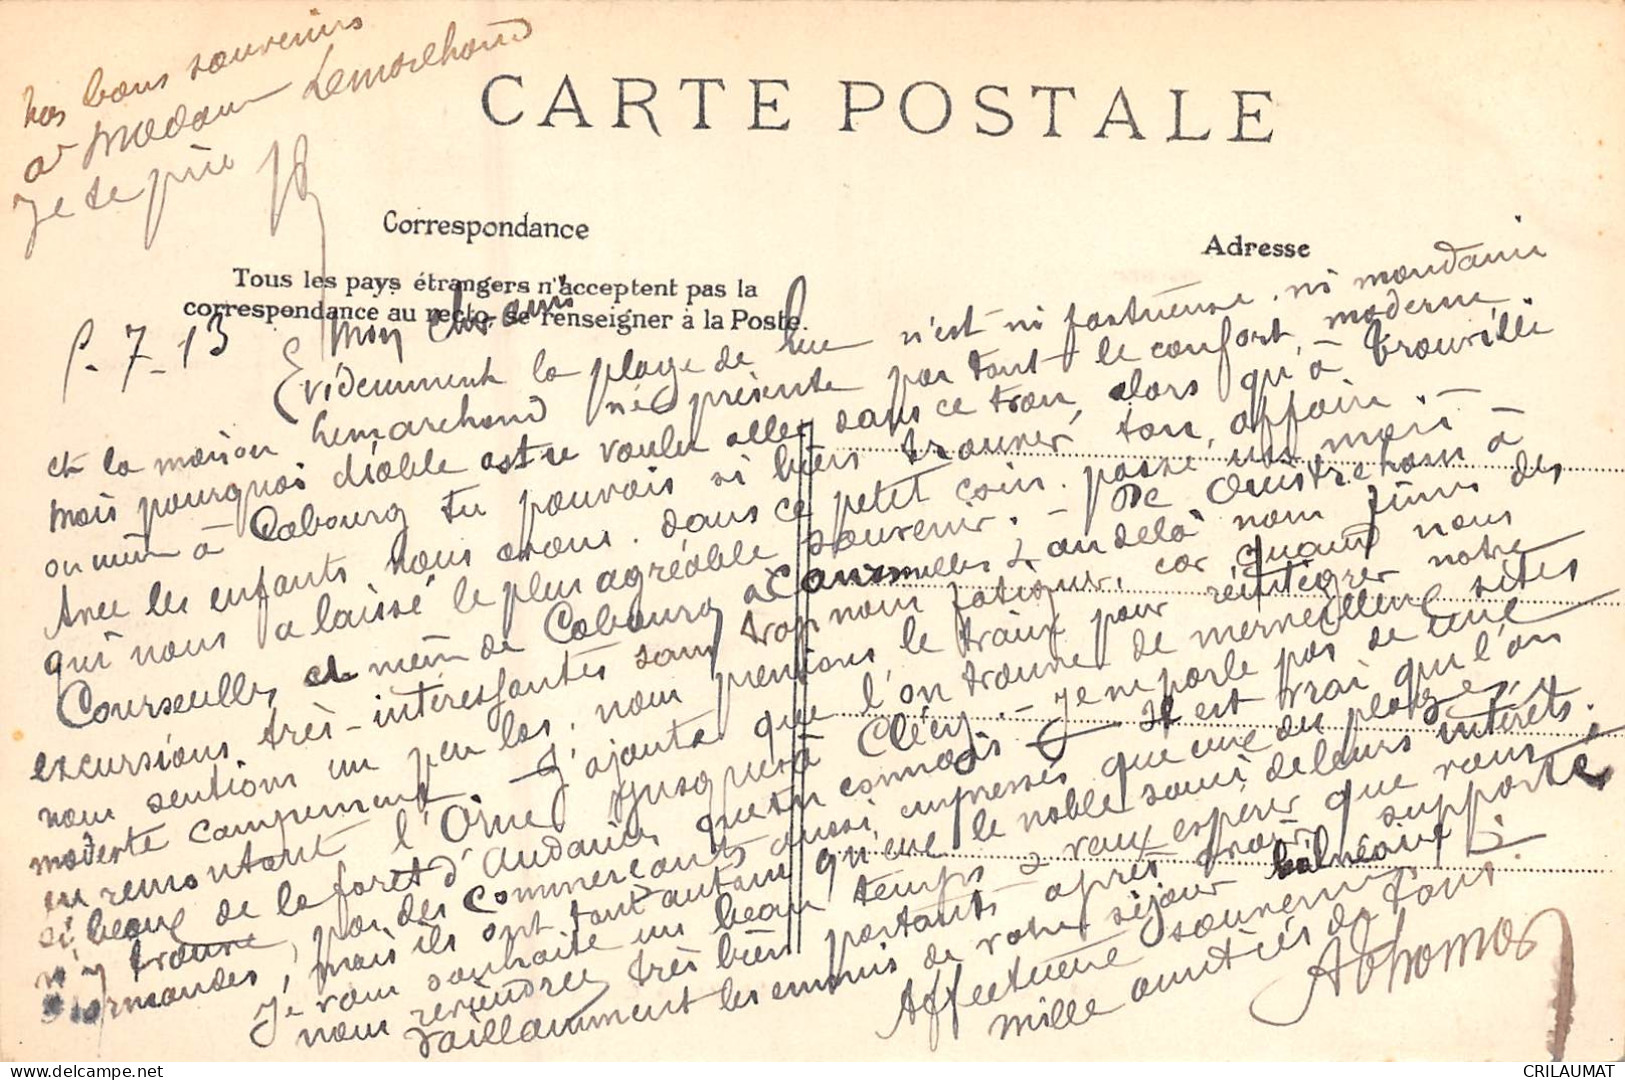 nos bons souvenirs
a Madame Lemarchand
je te prie
CARTE POSTALE
Correspondance
Adresse
Tous les pays étrangers n'acceptent pas la
correspondance au recto, se renseigner à la Poste.
7-13
Mon cher ami
Evidemment la plage de Luc n'est ni fastueuse, ni mondaine
et la maison Lemarchand ne présente pas tout le confort moderne.
Mais pourquoi diable as tu voulu aller dans ce trou, alors qu'à Trouville
ou même à Cabourg tu pouvais si bien trouver ton affaire. —
Avec les enfants nous avons passé un mois
dans ce petit coin
qui nous a laissé le plus agréable souvenir. — De Ouistreham à
Courseulles et même de Cabourg à Courseulles & au delà nous fîmes des
excursions très-intéressantes sans trop nous fatiguer, car quand nous
nous sentions un peu las, nous prenions le train pour réintégrer notre
modeste campement — J'ajoute que l'on trouve de merveilleux sites
en remontant l'Orne jusqu'à Clécy. — Je ne parle pas de une
si beaux de la forêt d' que tu connais — Il est vrai qu'on
n'y trouve, pas des commerçants aussi empressés que ceux des plages
normandes, mais ils ont tout autant qu'eux le noble souci de leurs intérêts.
Je vous souhaite un beau temps & veux espérer que vous
nous reviendrez très bien portants après avoir supporté
vaillamment les ennuis de votre séjour balnéaire
Affectueux souvenirs &
mille amitiés de tous.
AThomas
CRILAUMAT